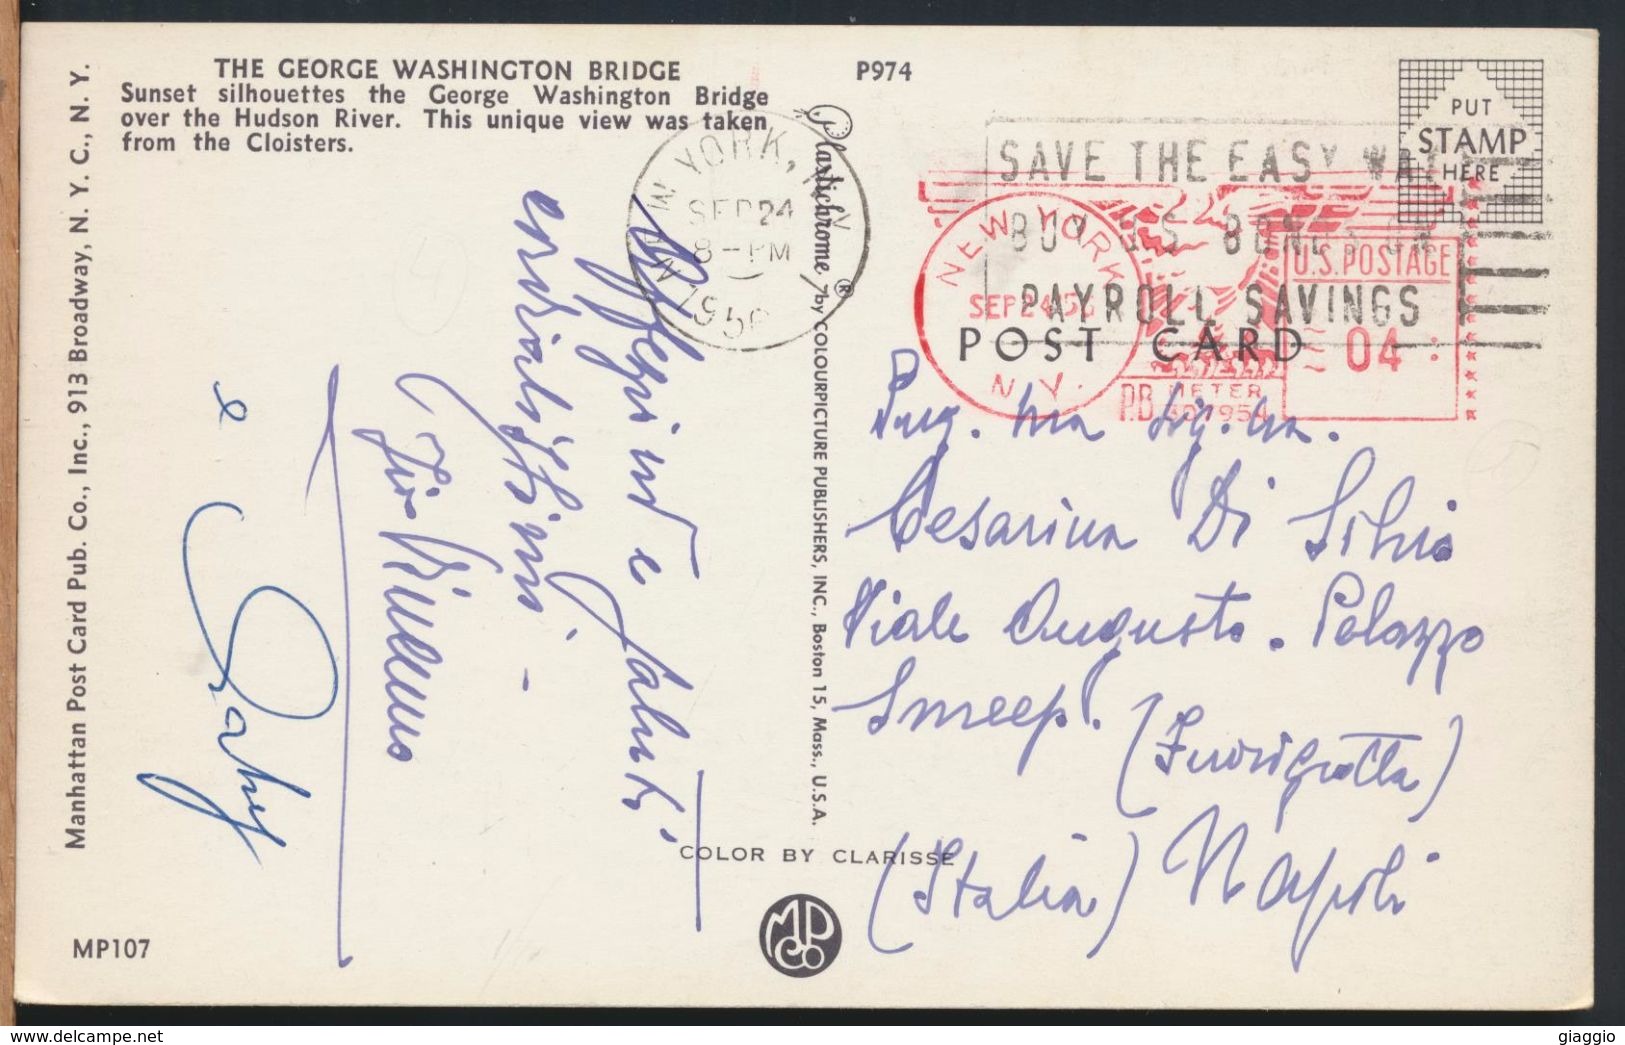 THE GEORGE WASHINGTON BRIDGE
Sunset silhouettes the George Washington Bridge
over the Hudson River. This unique view was taken
from the Cloisters.
P974
Manhattan Post Card Pub. Co., Inc., 913 Broadway, N. Y. C., N. Y.
MP107
Plastichrome ® by COLOURPICTURE PUBLISHERS, INC., Boston 15, Mass., U.S.A.
COLOR BY CLARISSE
MPCo
PUT
STAMP
HERE
POST CARD
NEW YORK, N.Y.
SEP 24
8-PM
1956
SAVE THE EASY WAY
BUY U.S. BONDS ON
PAYROLL SAVINGS
NEW YORK
SEP 24 '56
N.Y.
U.S. POSTAGE
04
P.B. METER
Affegiud e Saluti
cordialissimi -
e Gaby
Cesarina Di Silvio
Viale Augusto. Palazzo
Smeepl.
(Fuorigrotta)
(Italia) Napoli
giaggio